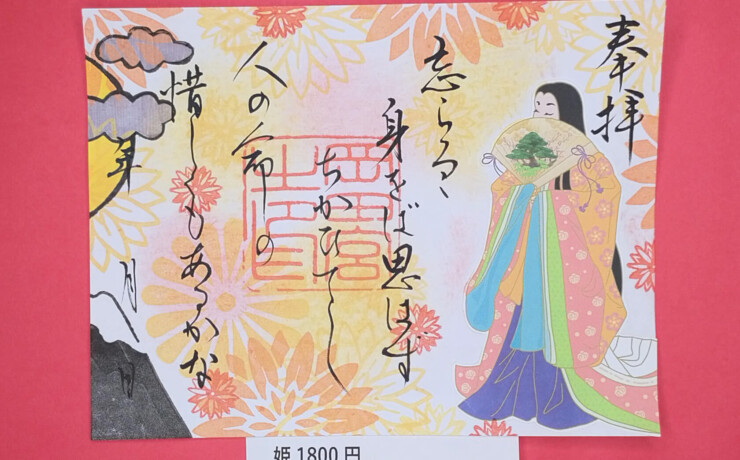 奉拝
忘らるゝ
身をば思はず
ちかひてし
人の命の
惜しくもあるかな
年
月
日
姫 1800 円